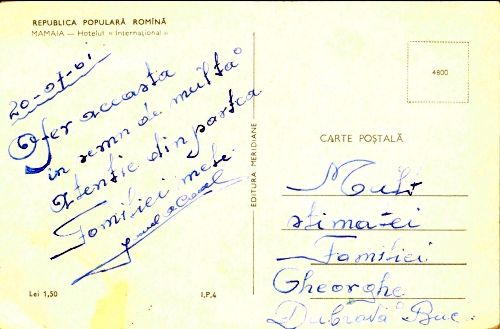 REPUBLICA POPULARĂ ROMÎNĂ
MAMAIA — Hotelul « Internațional »
20-07-61
Ofer aceasta
în semn de multă
Atenție din partea
Familiei mele.
4800
CARTE POȘTALĂ
EDITURA MERIDIANE
Mult
stimatei
Familiei
Gheorghe
Dubravă Buc.
Lei 1,50
I.P.4